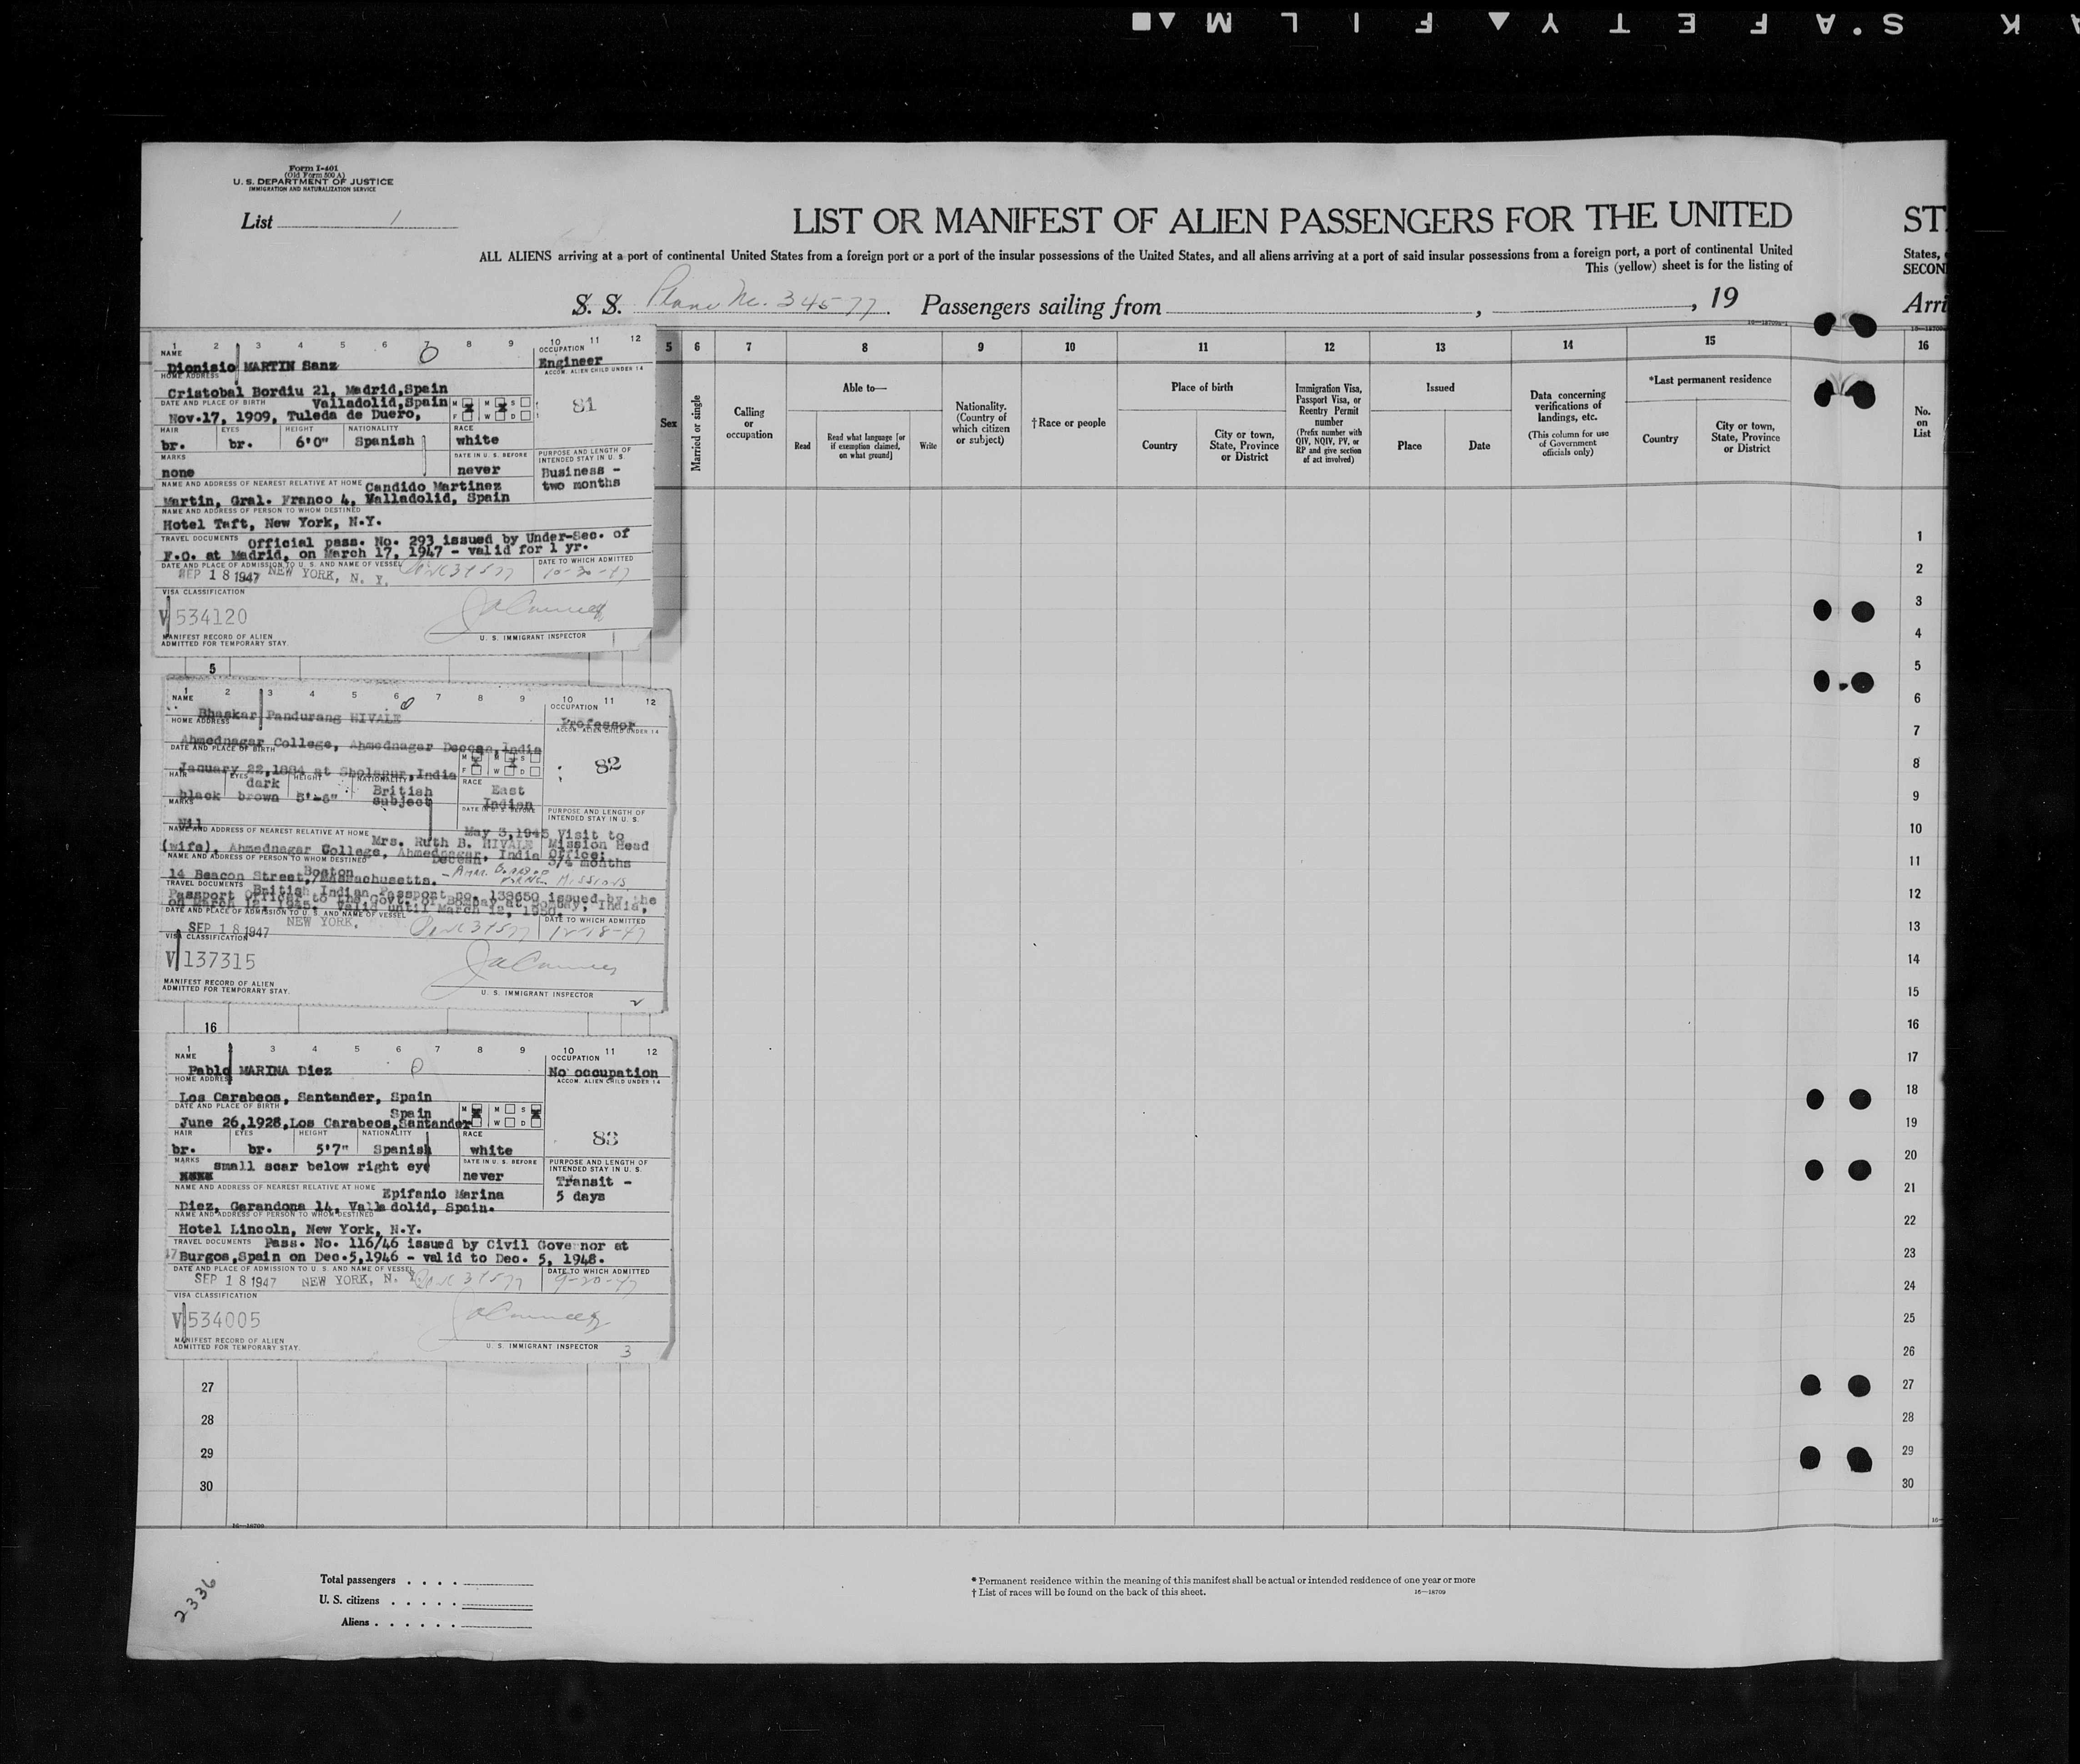 K S'AFETY▲FILM▲■
Form I-401
(Old Form 500 A)
U. S. DEPARTMENT OF JUSTICE
IMMIGRATION AND NATURALIZATION SERVICE
List 1
LIST OR MANIFEST OF ALIEN PASSENGERS FOR THE UNITED
ST
ALL ALIENS arriving at a port of continental United States from a foreign port or a port of the insular possessions of the United States, and all aliens arriving at a port of said insular possessions from a foreign port, a port of continental United
States,
This (yellow) sheet is for the listing of
SECON
S. S. Plane No. 34577. Passengers sailing from , , 19
Arri
1 2 3 4 5 6 7 8 9 10 11 12
NAME
Dionisio MARTIN Sanz
OCCUPATION
Engineer
HOME ADDRESS
ACCOM. ALIEN CHILD UNDER 14
Cristobal Bordiu 21, Madrid,Spain
DATE AND PLACE OF BIRTH Valladolid,Spain
M M S
F W D
81
Nov.17, 1909, Tuleda de Duero,
HAIR EYES HEIGHT NATIONALITY RACE
br. br. 6'0" Spanish white
MARKS
none
DATE IN U. S. BEFORE
never
PURPOSE AND LENGTH OF
INTENDED STAY IN U. S.
Business -
two months
NAME AND ADDRESS OF NEAREST RELATIVE AT HOME Candido Martinez
Martin, Gral. Franco 4, Valladolid, Spain
NAME AND ADDRESS OF PERSON TO WHOM DESTINED
Hotel Taft, New York, N.Y.
TRAVEL DOCUMENTS Official pass. No. 293 issued by Under-Sec. of
F.O. at Madrid, on March 17, 1947 - valid for 1 yr.
DATE AND PLACE OF ADMISSION TO U. S. AND NAME OF VESSEL
DATE TO WHICH ADMITTED
SEP 18 1947 NEW YORK, N. Y. Plane 34577 10-30-47
VISA CLASSIFICATION
V 534120
MANIFEST RECORD OF ALIEN
ADMITTED FOR TEMPORARY STAY.
U. S. IMMIGRANT INSPECTOR 1
5
1 2 3 4 5 6 7 8 9 10 11 12
NAME
Bhaskar Pandurang HIVALE
OCCUPATION
Professor
HOME ADDRESS
ACCOM. ALIEN CHILD UNDER 14
Ahmednagar College, Ahmednagar Deccan,India
DATE AND PLACE OF BIRTH
M M S
F W D
82
January 22,1884 at Sholapur,India
HAIR EYES HEIGHT NATIONALITY RACE
black dark brown 5'-6" British subject East Indian
MARKS
Nil
DATE IN U. S. BEFORE
May 3,1945
PURPOSE AND LENGTH OF
INTENDED STAY IN U. S.
Visit to
Mission Head
Office;
3/4 months
NAME AND ADDRESS OF NEAREST RELATIVE AT HOME Mrs. Ruth B. HIVALE
(wife), Ahmednagar College, Ahmednagar, Deccan, India
NAME AND ADDRESS OF PERSON TO WHOM DESTINED
14 Beacon Street, Boston /Massachusetts. - Amer. Board of Foreign Missions
TRAVEL DOCUMENTS British Indian Passport no. 138650 issued by the
Passport Officer to the Govt. of Bombay at Bombay, India,
on March 12, 1945. Valid until March 12, 1950.
DATE AND PLACE OF ADMISSION TO U. S. AND NAME OF VESSEL
DATE TO WHICH ADMITTED
SEP 18 1947 NEW YORK. Plane 34577 12-18-47
VISA CLASSIFICATION
V 137315
MANIFEST RECORD OF ALIEN
ADMITTED FOR TEMPORARY STAY.
U. S. IMMIGRANT INSPECTOR 2
16
1 2 3 4 5 6 7 8 9 10 11 12
NAME
Pablo MARINA Diez
OCCUPATION
No occupation
HOME ADDRESS
ACCOM. ALIEN CHILD UNDER 14
Los Carabeos, Santander, Spain
DATE AND PLACE OF BIRTH Spain
M M S
F W D
83
June 26,1928,Los Carabeos,Santander
HAIR EYES HEIGHT NATIONALITY RACE
br. br. 5'7" Spanish white
MARKS small scar below right eye
DATE IN U. S. BEFORE
never
PURPOSE AND LENGTH OF
INTENDED STAY IN U. S.
Transit -
5 days
NAME AND ADDRESS OF NEAREST RELATIVE AT HOME Epifanio Marina
Diez, Garandona 14, Valladolid, Spain.
NAME AND ADDRESS OF PERSON TO WHOM DESTINED
Hotel Lincoln, New York, N.Y.
TRAVEL DOCUMENTS Pass. No. 116/46 issued by Civil Governor at
Burgos,Spain on Dec.5,1946 - valid to Dec. 5, 1948.
DATE AND PLACE OF ADMISSION TO U. S. AND NAME OF VESSEL
DATE TO WHICH ADMITTED
SEP 18 1947 NEW YORK, N. Y. Plane 34577 9-20-47
VISA CLASSIFICATION
V 534005
MANIFEST RECORD OF ALIEN
ADMITTED FOR TEMPORARY STAY.
U. S. IMMIGRANT INSPECTOR 3
27
28
29
30
16—18709
5 6 7 8 9 10 11 12 13 14 15 16
Sex
Married or single
Calling or occupation
Able to—
Read
Read what language [or if exemption claimed, on what ground]
Write
Nationality. (Country of which citizen or subject)
†Race or people
Place of birth
Country
City or town, State, Province or District
Immigration Visa, Passport Visa, or Reentry Permit number
(Prefix number with QIV, NQIV, PV, or RP and give section of act involved)
Issued
Place
Date
Data concerning verifications of landings, etc.
(This column for use of Government officials only)
*Last permanent residence
Country
City or town, State, Province or District
No. on List
1
2
3
4
5
6
7
8
9
10
11
12
13
14
15
16
17
18
19
20
21
22
23
24
25
26
27
28
29
30
Total passengers . . . .
U. S. citizens . . . . .
Aliens . . . . . .
* Permanent residence within the meaning of this manifest shall be actual or intended residence of one year or more
† List of races will be found on the back of this sheet.
16—18709
2336